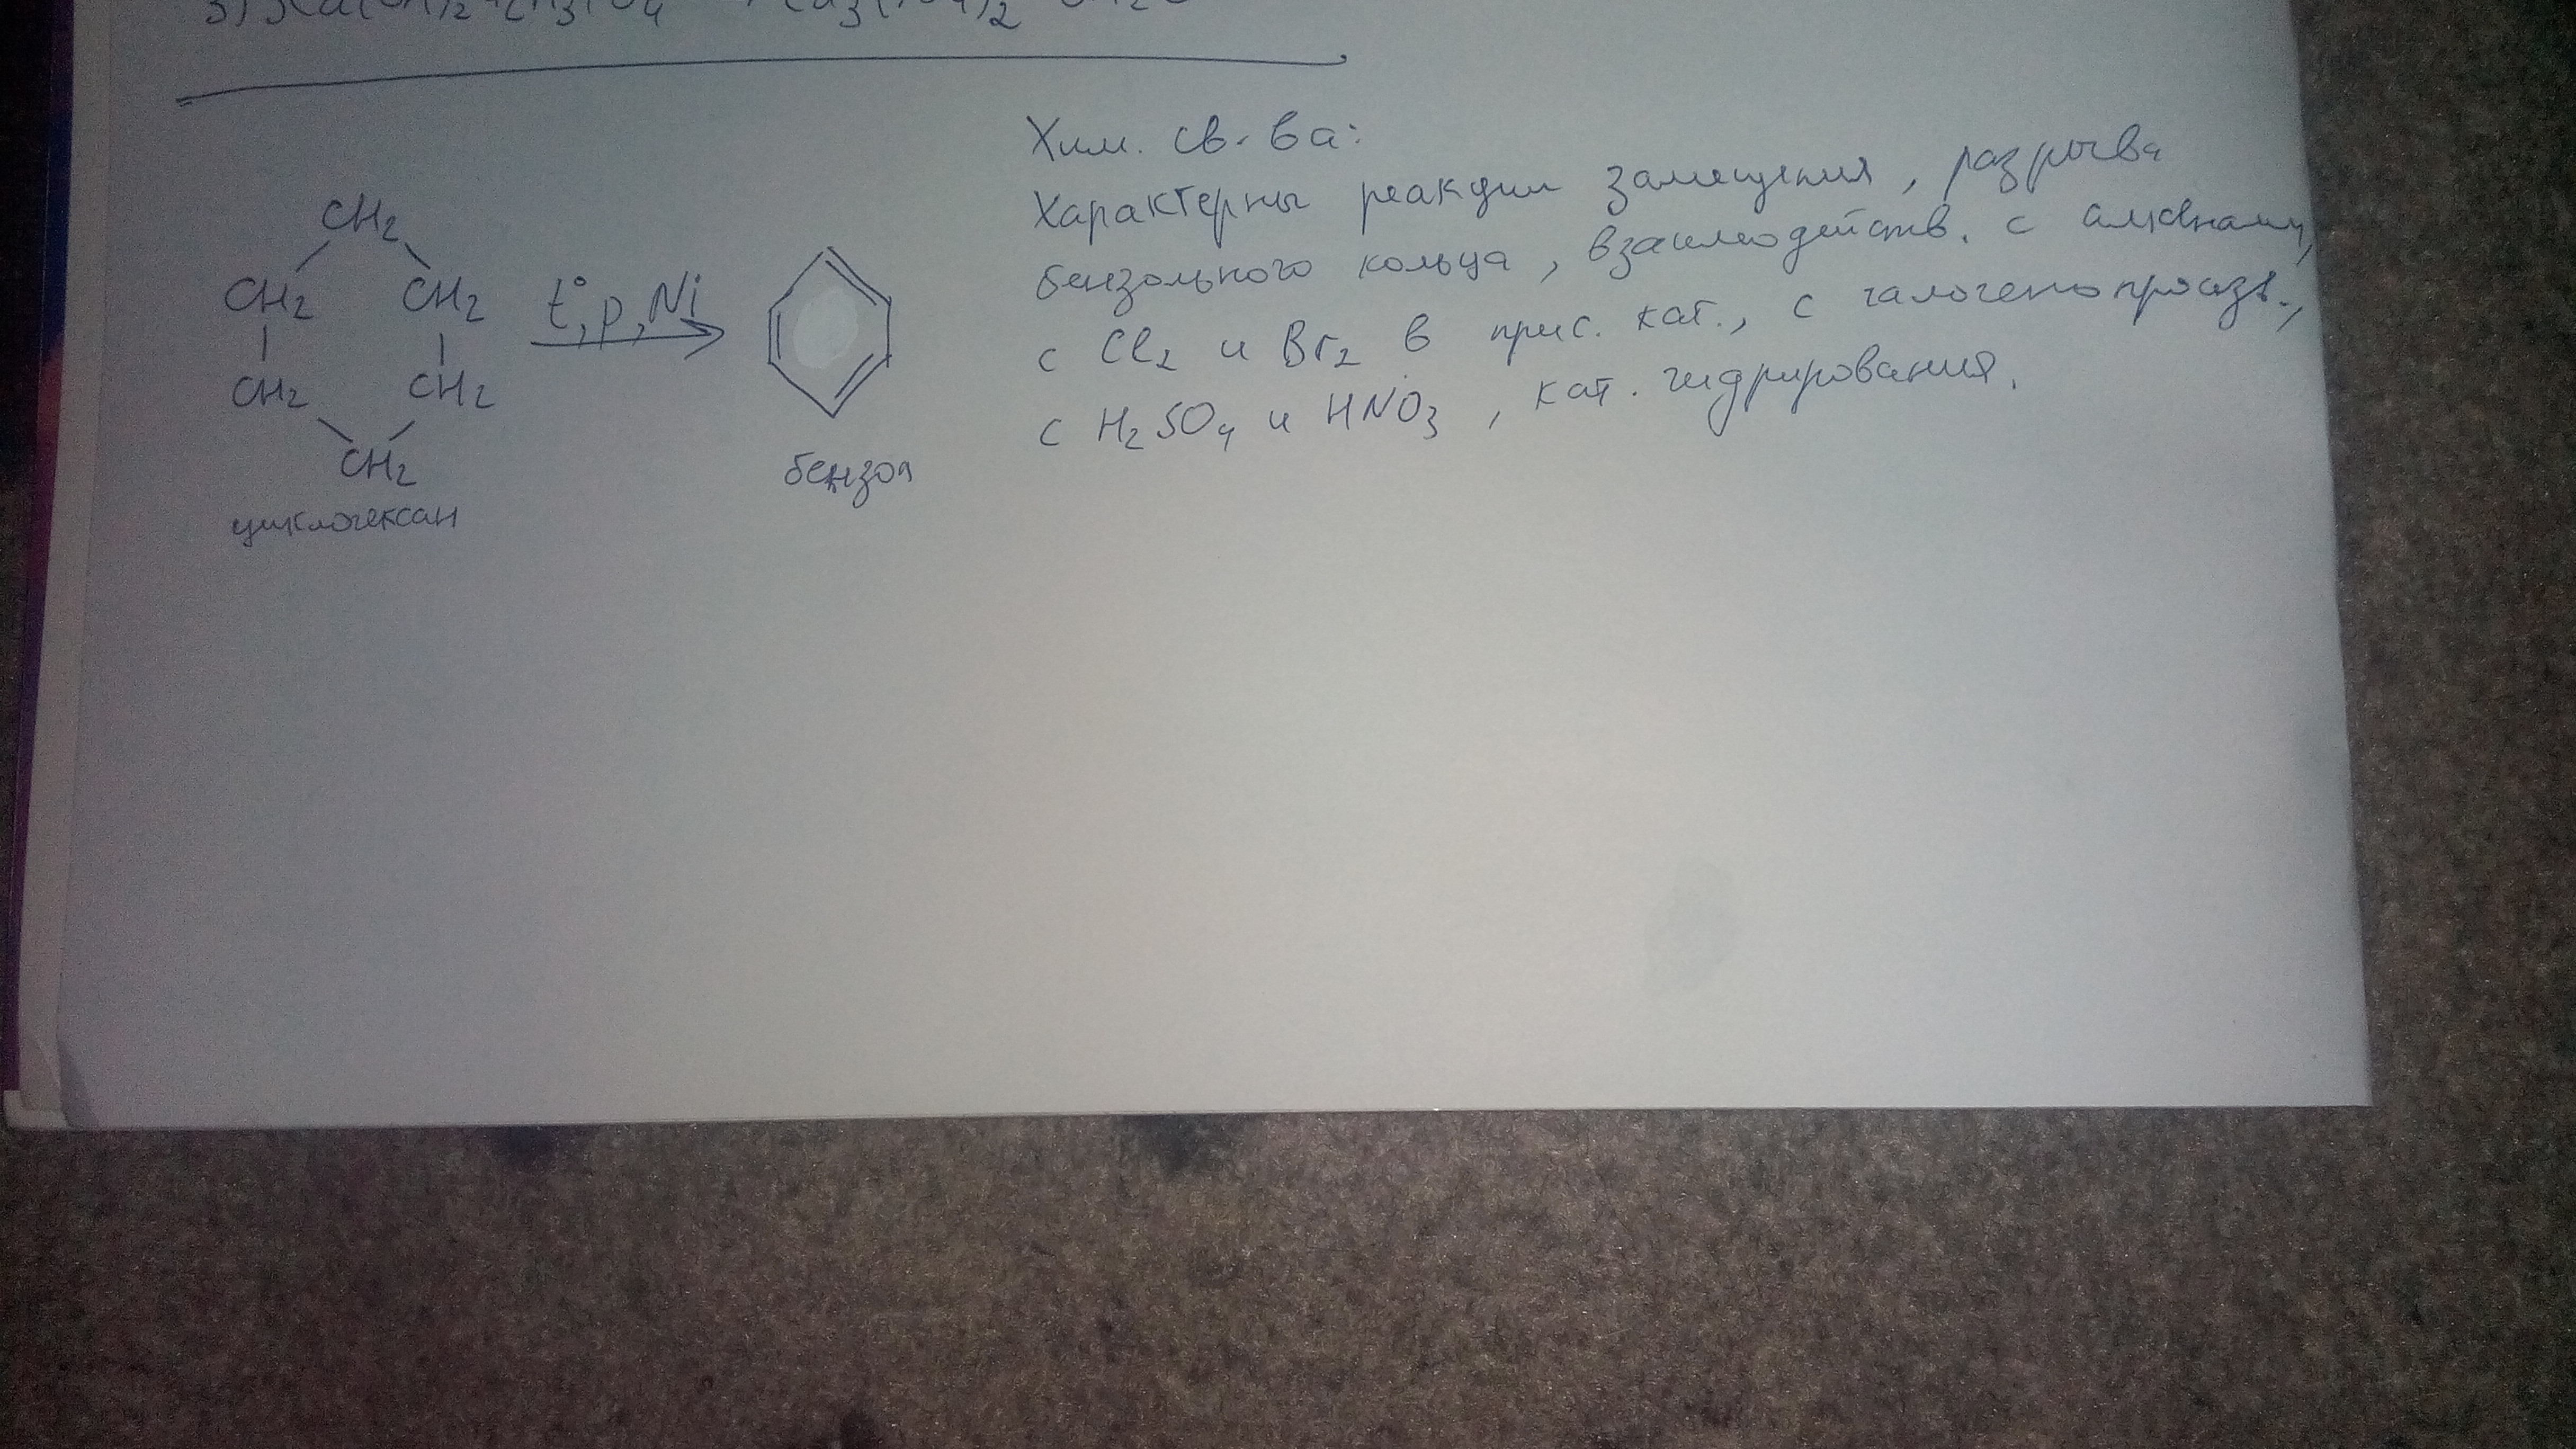 3) 3Ca(OH)2 + 2H3PO4 → Ca3(PO4)2
CH2
CH2 CH2
t°, p, Ni
CH2 CH2
CH2
циклогексан
бензол
Хим. св-ва:
Характерны реакции замещения, разрыва
бензольного кольца, взаимодейств. с алкенами,
с Cl2 и Br2 в прис. кат., с галогенопроизв.,
с H2SO4 и HNO3, кат. гидрирования.